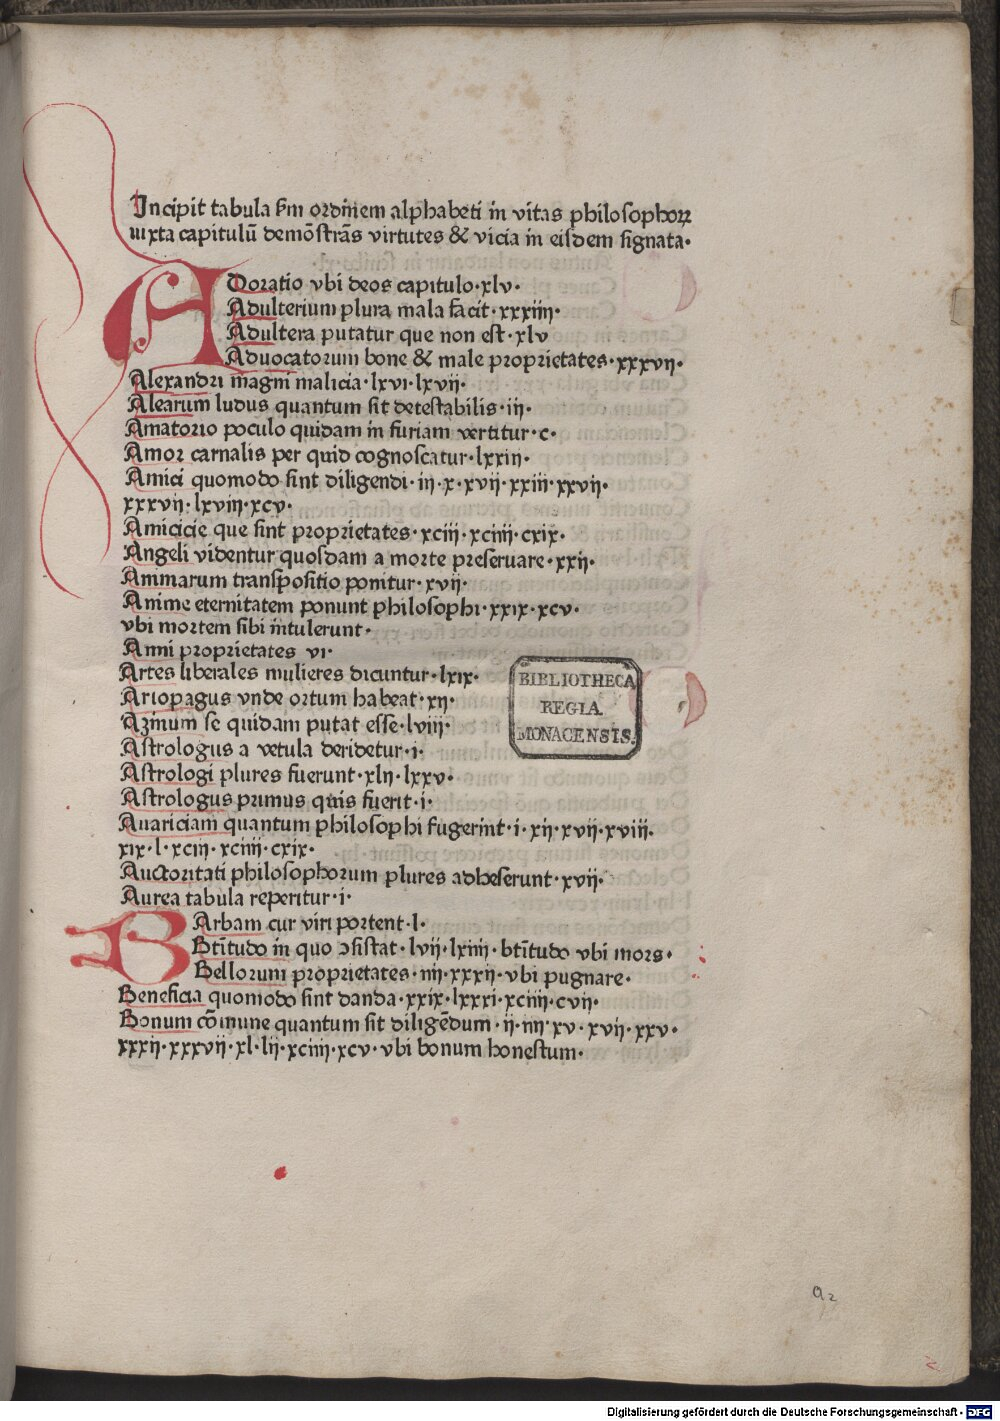 Incipit tabula ſꝫm ordinem alphabeti in vitas philoſophoꝝ
iuxta capitulū demōſtrās virtutes & vicia in eiſdem ſignata·
ADoratio vbi deos capitulo·xlv·
Adulterium plura mala facit·xxxiiij·
Adultera putatur que non eſt·xlv
Aduocatorum bone & male proprietates·xxxvij·
Alexandri magni malicia·lxvi·lxvij·
Alearum ludus quantum ſit deteſtabilis·iij·
Amatorio poculo quidam in furiam vertitur·c·
Amor carnalis per quid cognoſcatur·lxxiij·
Amici quomodo ſint diligendi·iij·x·xvij·xxiij·xxvij·
xxxvij·lxviij·xcv·
Amicicie que ſint proprietates·xciij·xciiij·cxix·
Angeli videntur quoſdam a morte preſeruare·xxij·
Animarum tranſpoſitio ponitur·xvij·
Anime eternitatem ponunt philoſophi·xxix·xcv·
vbi mortem ſibi intulerunt·
Anni proprietates vi·
Artes liberales mulieres dicuntur·lxix·
Ariopagus vnde ortum habeat·xij·
Azinum ſe quidam putat eſſe·lviij·
Aſtrologus a vetula deridetur·i·
Aſtrologi plures fuerunt·xlij·lxxv·
Aſtrologus primus quis fuerit·i·
Auariciam quantum philoſophi fugerint·i·xij·xvij·xviij·
xix·l·xciij·xciiij·cxix·
Auctoritati philoſophorum plures adheſerunt·xvij·
Aurea tabula reperitur·i·
BArbam cur viri portent·l·
Btītudo in quo ꝯſiſtat·lvij·lxiiij·btītudo vbi mors·
Bellorum proprietates·iiij·xxxij·vbi pugnare·
Beneficia quomodo ſint danda·xxix·lxxxi·xciiij·cvij·
Bonum cōmune quantum ſit diligēdum·ij·iiij·xv·xvij·xxv·
xxxij·xxxvij·xl·lij·xciiij·xcv·vbi bonum honeſtum·
BIBLIOTHECA
REGIA
MONACENSIS.
a2
2
Digitalisierung gefördert durch die Deutsche Forschungsgemeinschaft - DFG